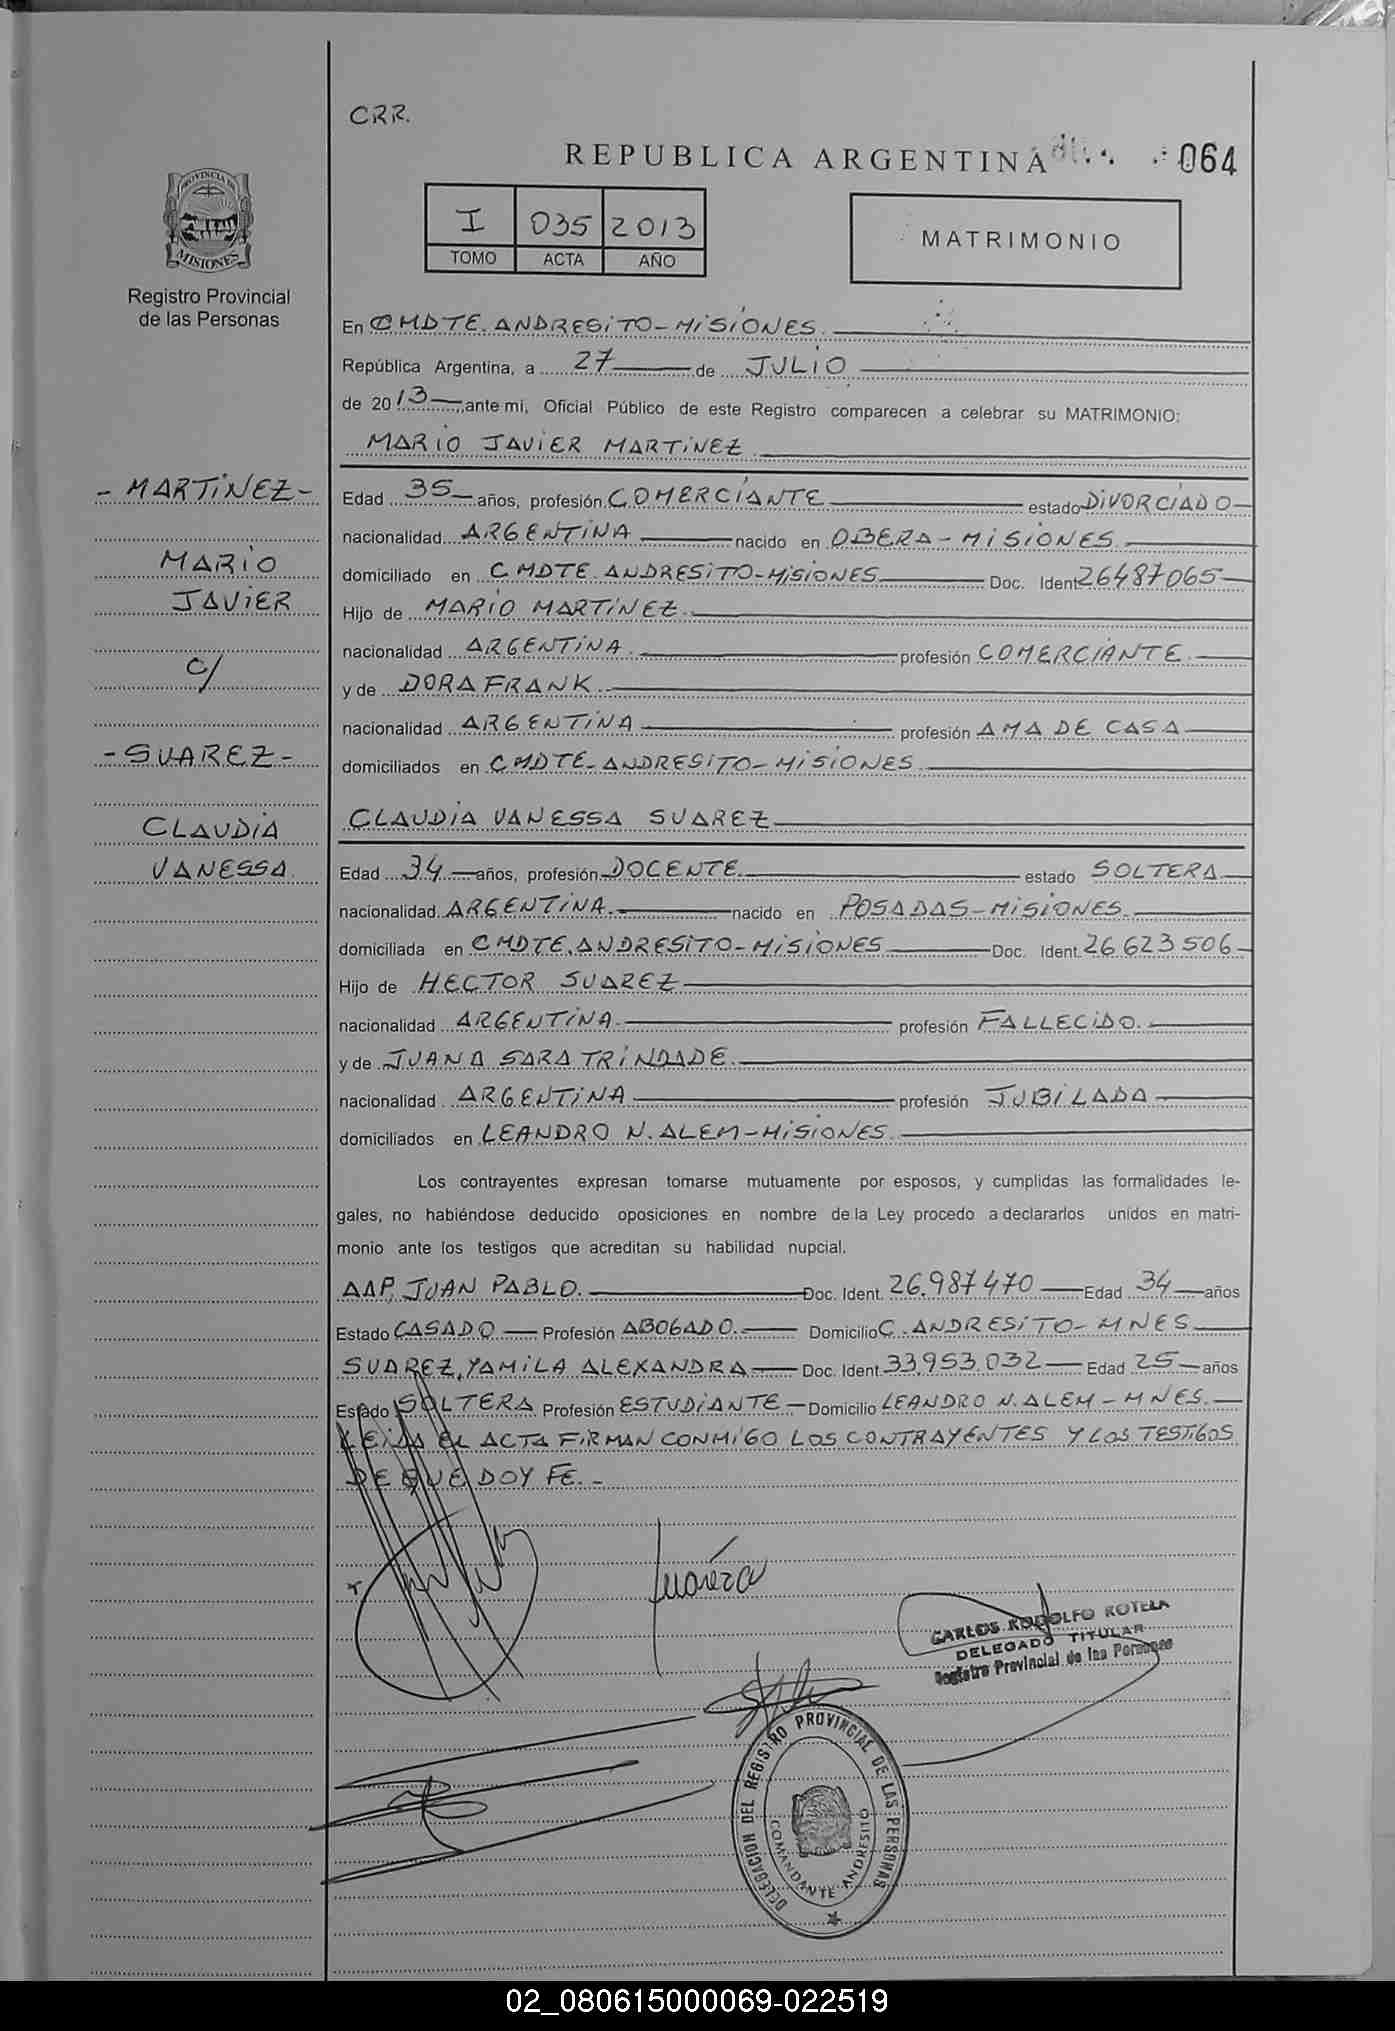 CRR.
REPUBLICA ARGENTINA 064
PROVINCIA DE
MISIONES
Registro Provincial
de las Personas
I 035 2013
TOMO ACTA AÑO
MATRIMONIO
En CMDTE. ANDRESITO - MISIONES.
República Argentina, a 27 de JULIO
de 2013, ante mi, Oficial Público de este Registro comparecen a celebrar su MATRIMONIO:
MARIO JAVIER MARTINEZ
- MARTINEZ -
MARIO
JAVIER
C/
- SUAREZ -
CLAUDIA
VANESSA
Edad 35 años, profesión COMERCIANTE estado DIVORCIADO
nacionalidad ARGENTINA nacido en OBERA - MISIONES.
domiciliado en CMDTE. ANDRESITO - MISIONES Doc. Ident 26487065
Hijo de MARIO MARTINEZ
nacionalidad ARGENTINA. profesión COMERCIANTE.
y de DORA FRANK
nacionalidad ARGENTINA profesión AMA DE CASA
domiciliados en CMDTE - ANDRESITO - MISIONES
CLAUDIA VANESSA SUAREZ
Edad 34 años, profesión DOCENTE. estado SOLTERA
nacionalidad ARGENTINA. nacido en POSADAS - MISIONES.
domiciliada en CMDTE. ANDRESITO - MISIONES Doc. Ident. 26623506
Hijo de HECTOR SUAREZ
nacionalidad ARGENTINA. profesión FALLECIDO.
y de JUANA SARA TRINDADE.
nacionalidad ARGENTINA profesión JUBILADA
domiciliados en LEANDRO N. ALEM - MISIONES.
Los contrayentes expresan tomarse mutuamente por esposos, y cumplidas las formalidades le-
gales, no habiéndose deducido oposiciones en nombre de la Ley procedo a declararlos unidos en matri-
monio ante los testigos que acreditan su habilidad nupcial.
AAP, JUAN PABLO. Doc. Ident. 26.987470 Edad 34 años
Estado CASADO Profesión ABOGADO. Domicilio C. ANDRESITO - MNES
SUAREZ, YAMILA ALEXANDRA Doc. Ident. 33.953.032 Edad 25 años
Estado SOLTERA Profesión ESTUDIANTE - Domicilio LEANDRO N. ALEM - MNES.
LEIDA EL ACTA FIRMAN CONMIGO LOS CONTRAYENTES Y LOS TESTIGOS
DE QUE DOY FE. -
CARLOS RODOLFO ROTELA
DELEGADO TITULAR
Registro Provincial de las Personas
DELEGACION DEL REGISTRO PROVINCIAL DE LAS PERSONAS
COMANDANTE ANDRESITO
02_080615000069-022519